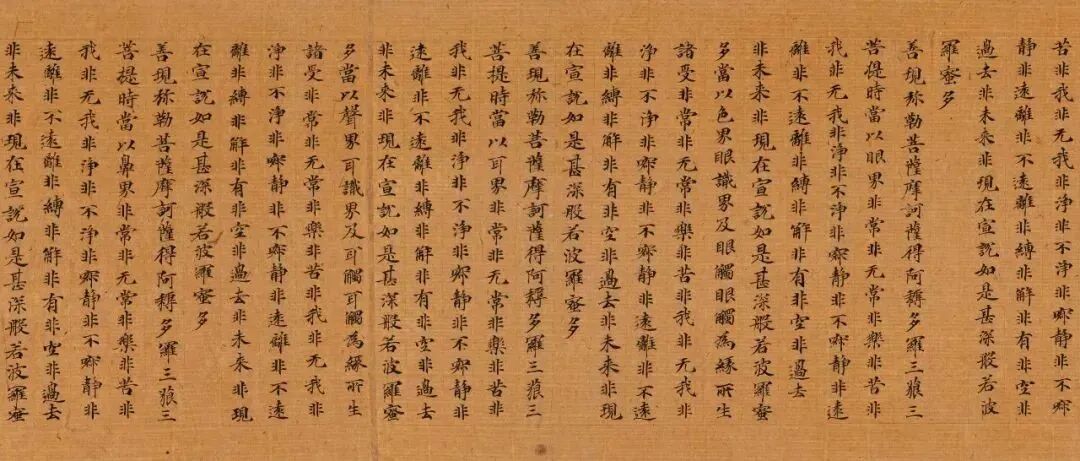 苦非我非无我非淨非不淨非寂静非不寂
静非遠離非不遠離非縛非解非有非空非
過去非未来非現在宣說如是甚深般若波
羅蜜多
善現弥勒菩薩摩訶薩得阿耨多羅三藐三
菩提時當以眼界非常非无常非樂非苦非
我非无我非淨非不淨非寂静非不寂静非遠
離非不遠離非縛非解非有非空非過去
非未来非現在宣說如是甚深般若波羅蜜
多當以色界眼識界及眼觸眼觸為緣所生
諸受非常非无常非樂非苦非我非无我非
淨非不淨非寂静非不寂静非遠離非不遠
離非縛非解非有非空非過去非未来非現
在宣說如是甚深般若波羅蜜多
善現弥勒菩薩摩訶薩得阿耨多羅三藐三
菩提時當以耳界非常非无常非樂非苦非
我非无我非淨非不淨非寂静非不寂静非
遠離非不遠離非縛非解非有非空非過去
非未来非現在宣說如是甚深般若波羅蜜
多當以聲界耳識界及耳觸耳觸為緣所生
諸受非常非无常非樂非苦非我非无我非
淨非不淨非寂静非不寂静非遠離非不遠
離非縛非解非有非空非過去非未来非現
在宣說如是甚深般若波羅蜜多
善現弥勒菩薩摩訶薩得阿耨多羅三藐三
菩提時當以鼻界非常非无常非樂非苦非
我非无我非淨非不淨非寂静非不寂静非
遠離非不遠離非縛非解非有非空非過去
非未来非現在宣說如是甚深般若波羅蜜